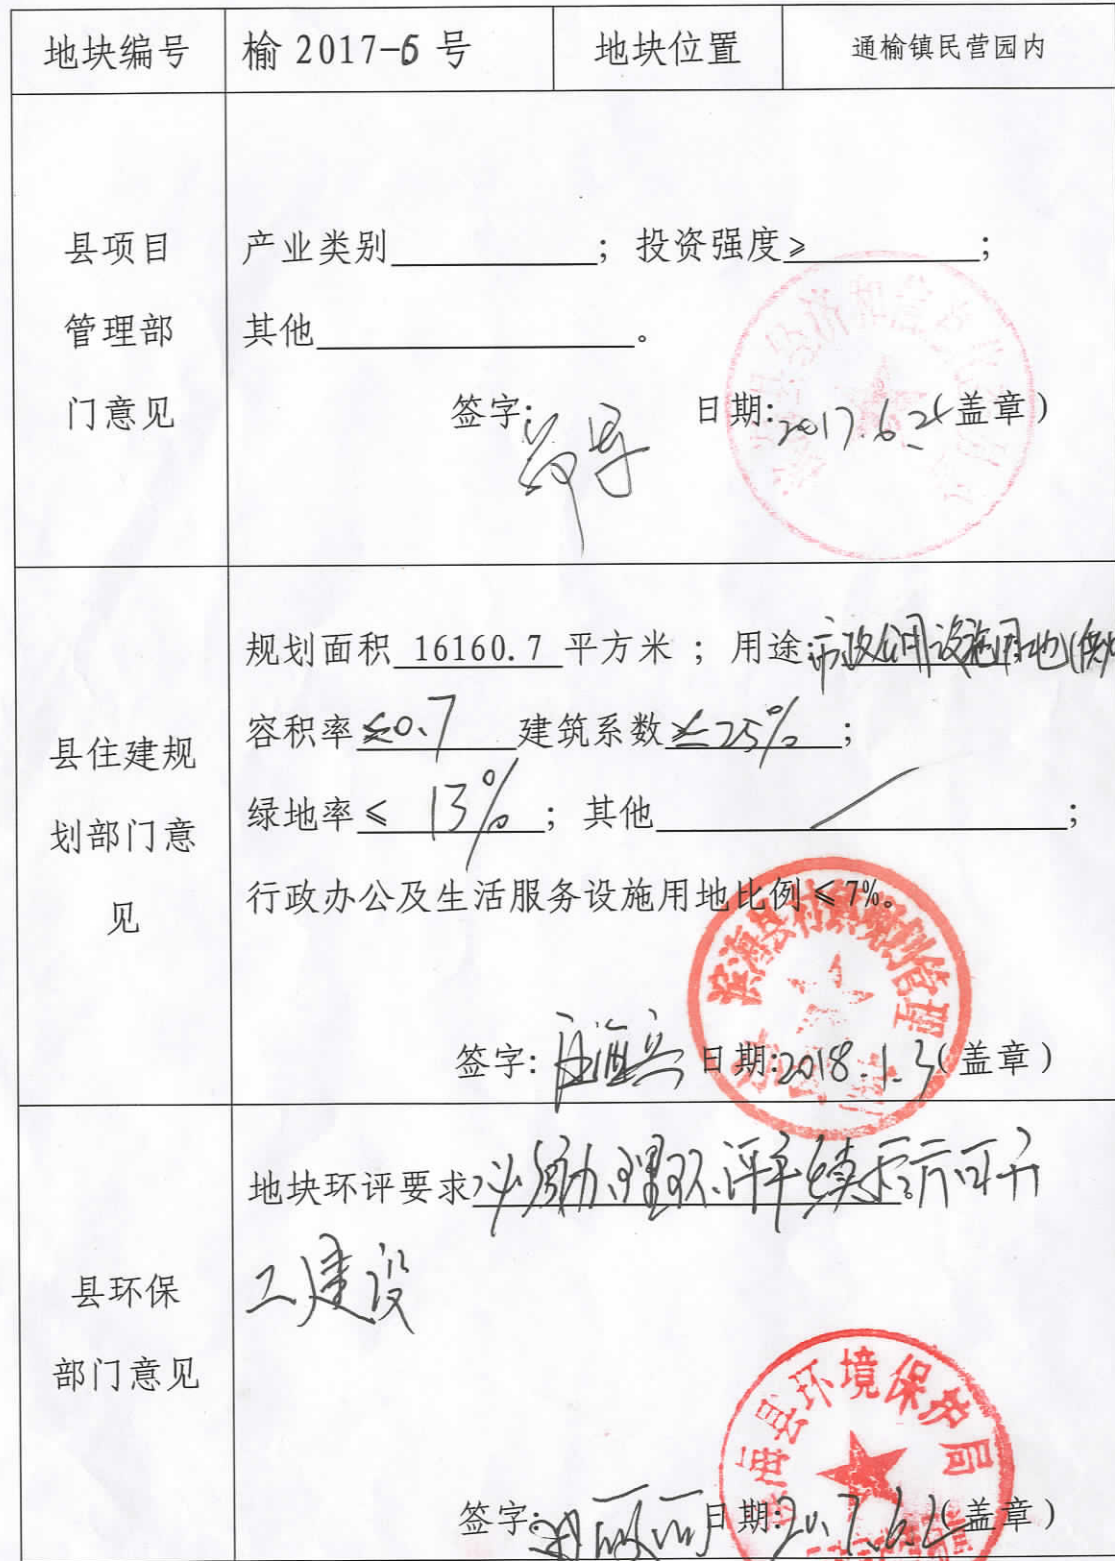 地块编号 榆 2017-6 号 地块位置 通榆镇民营园内
县项目
管理部
门意见
产业类别 ；投资强度≥ ；
其他 。
签字: 日期:2017.6.2 (盖章)
县住建规
划部门意
见
规划面积 16160.7 平方米 ；用途:市政公用设施用地(供
容积率≤0.7 建筑系数≤25% ；
绿地率≤ 13% ；其他 / ；
行政办公及生活服务设施用地比例≤7%。
滨海县村镇规划管理
办公室
签字: 日期:2018.1.3(盖章)
县环保
部门意见
地块环评要求:必须办理环评手续后方可开
工建设
滨海县环境保护局
签字: 日期:2017.6.2 (盖章)